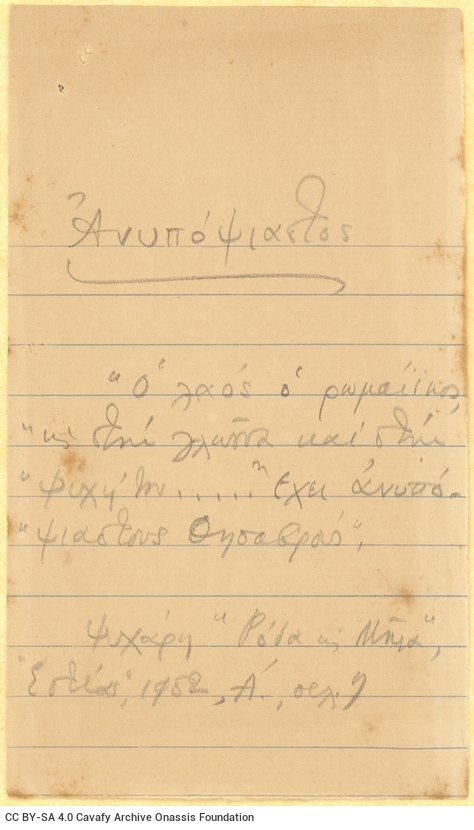 Ἀνυπόψιαστος
"Ὁ λαός ὁ ρωμαίικος
"κι στην γλῶσσα και στην
"ψυχή του......" ἔχει ἀνυπό-
"ψιαστους θησαυρούς",
Ψυχάρη "Ρόδα κι Μῆλα",
"Ἑστία", Α΄., σελ. 7
CC BY-SA 4.0 Cavafy Archive Onassis Foundation